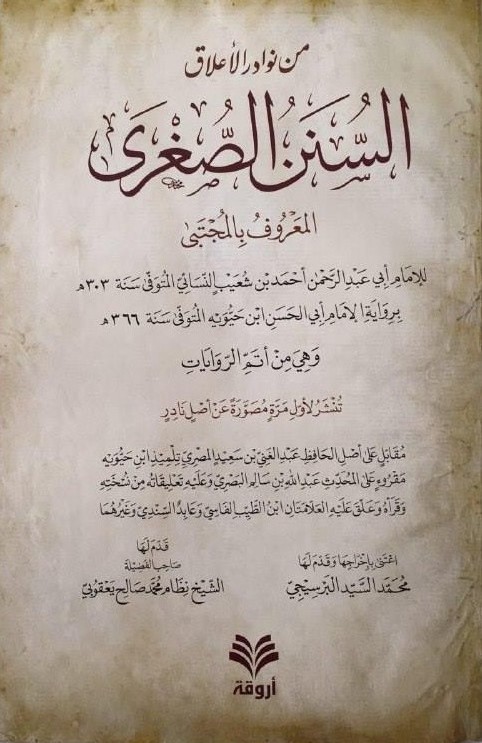 من نوادر الأعلاق
السُّنَنُ الصُّغْرَى
المَعْرُوفُ بِالمُجْتَبَى
لِلإِمَامِ أَبِي عَبْدِ الرَّحْمٰنِ أَحْمَدَ بْنِ شُعَيْبٍ النَّسَائِيِّ المُتَوَفَّى سَنَةَ ٣٠٣ هـ
بِرِوَايَةِ الإِمَامِ أَبِي الحَسَنِ ابْنِ حَيُّوَيْهِ المُتَوَفَّى سَنَةَ ٣٦٦ هـ
وَهِيَ مِنْ أَتَمِّ الرِّوَايَاتِ
تُنْشَرُ لِأَوَّلِ مَرَّةٍ مُصَوَّرَةً عَنْ أَصْلٍ نَادِرٍ
مُقَابَلٍ عَلَى أَصْلِ الحَافِظِ عَبْدِ الغَنِيِّ بْنِ سَعِيدٍ المِصْرِيِّ تِلْمِيذِ ابْنِ حَيُّوَيْهِ
مَقْرُوءٍ عَلَى المُحَدِّثِ عَبْدِ اللهِ بْنِ سَالِمٍ البَصْرِيِّ وَعَلَيْهِ تَعْلِيقَاتُهُ مِنْ نُسْخَتِهِ
وَقَرَأَهُ وَعَلَّقَ عَلَيْهِ العَلَّامَتَانِ ابْنُ الطَّيِّبِ الفَاسِيُّ وَعَابِدٌ السِّنْدِيُّ وَغَيْرُهُمَا
اعْتَنَى بِإِخْرَاجِهَا وَقَدَّمَ لَهَا
محمّد السَّيِّد البَرْسِيجِيّ
قَدَّمَ لَهَا
صَاحِبُ الفَضِيلَةِ
الشَّيْخ نِظَام محمّد صَالِح يَعْقُوبِيّ
أروقة